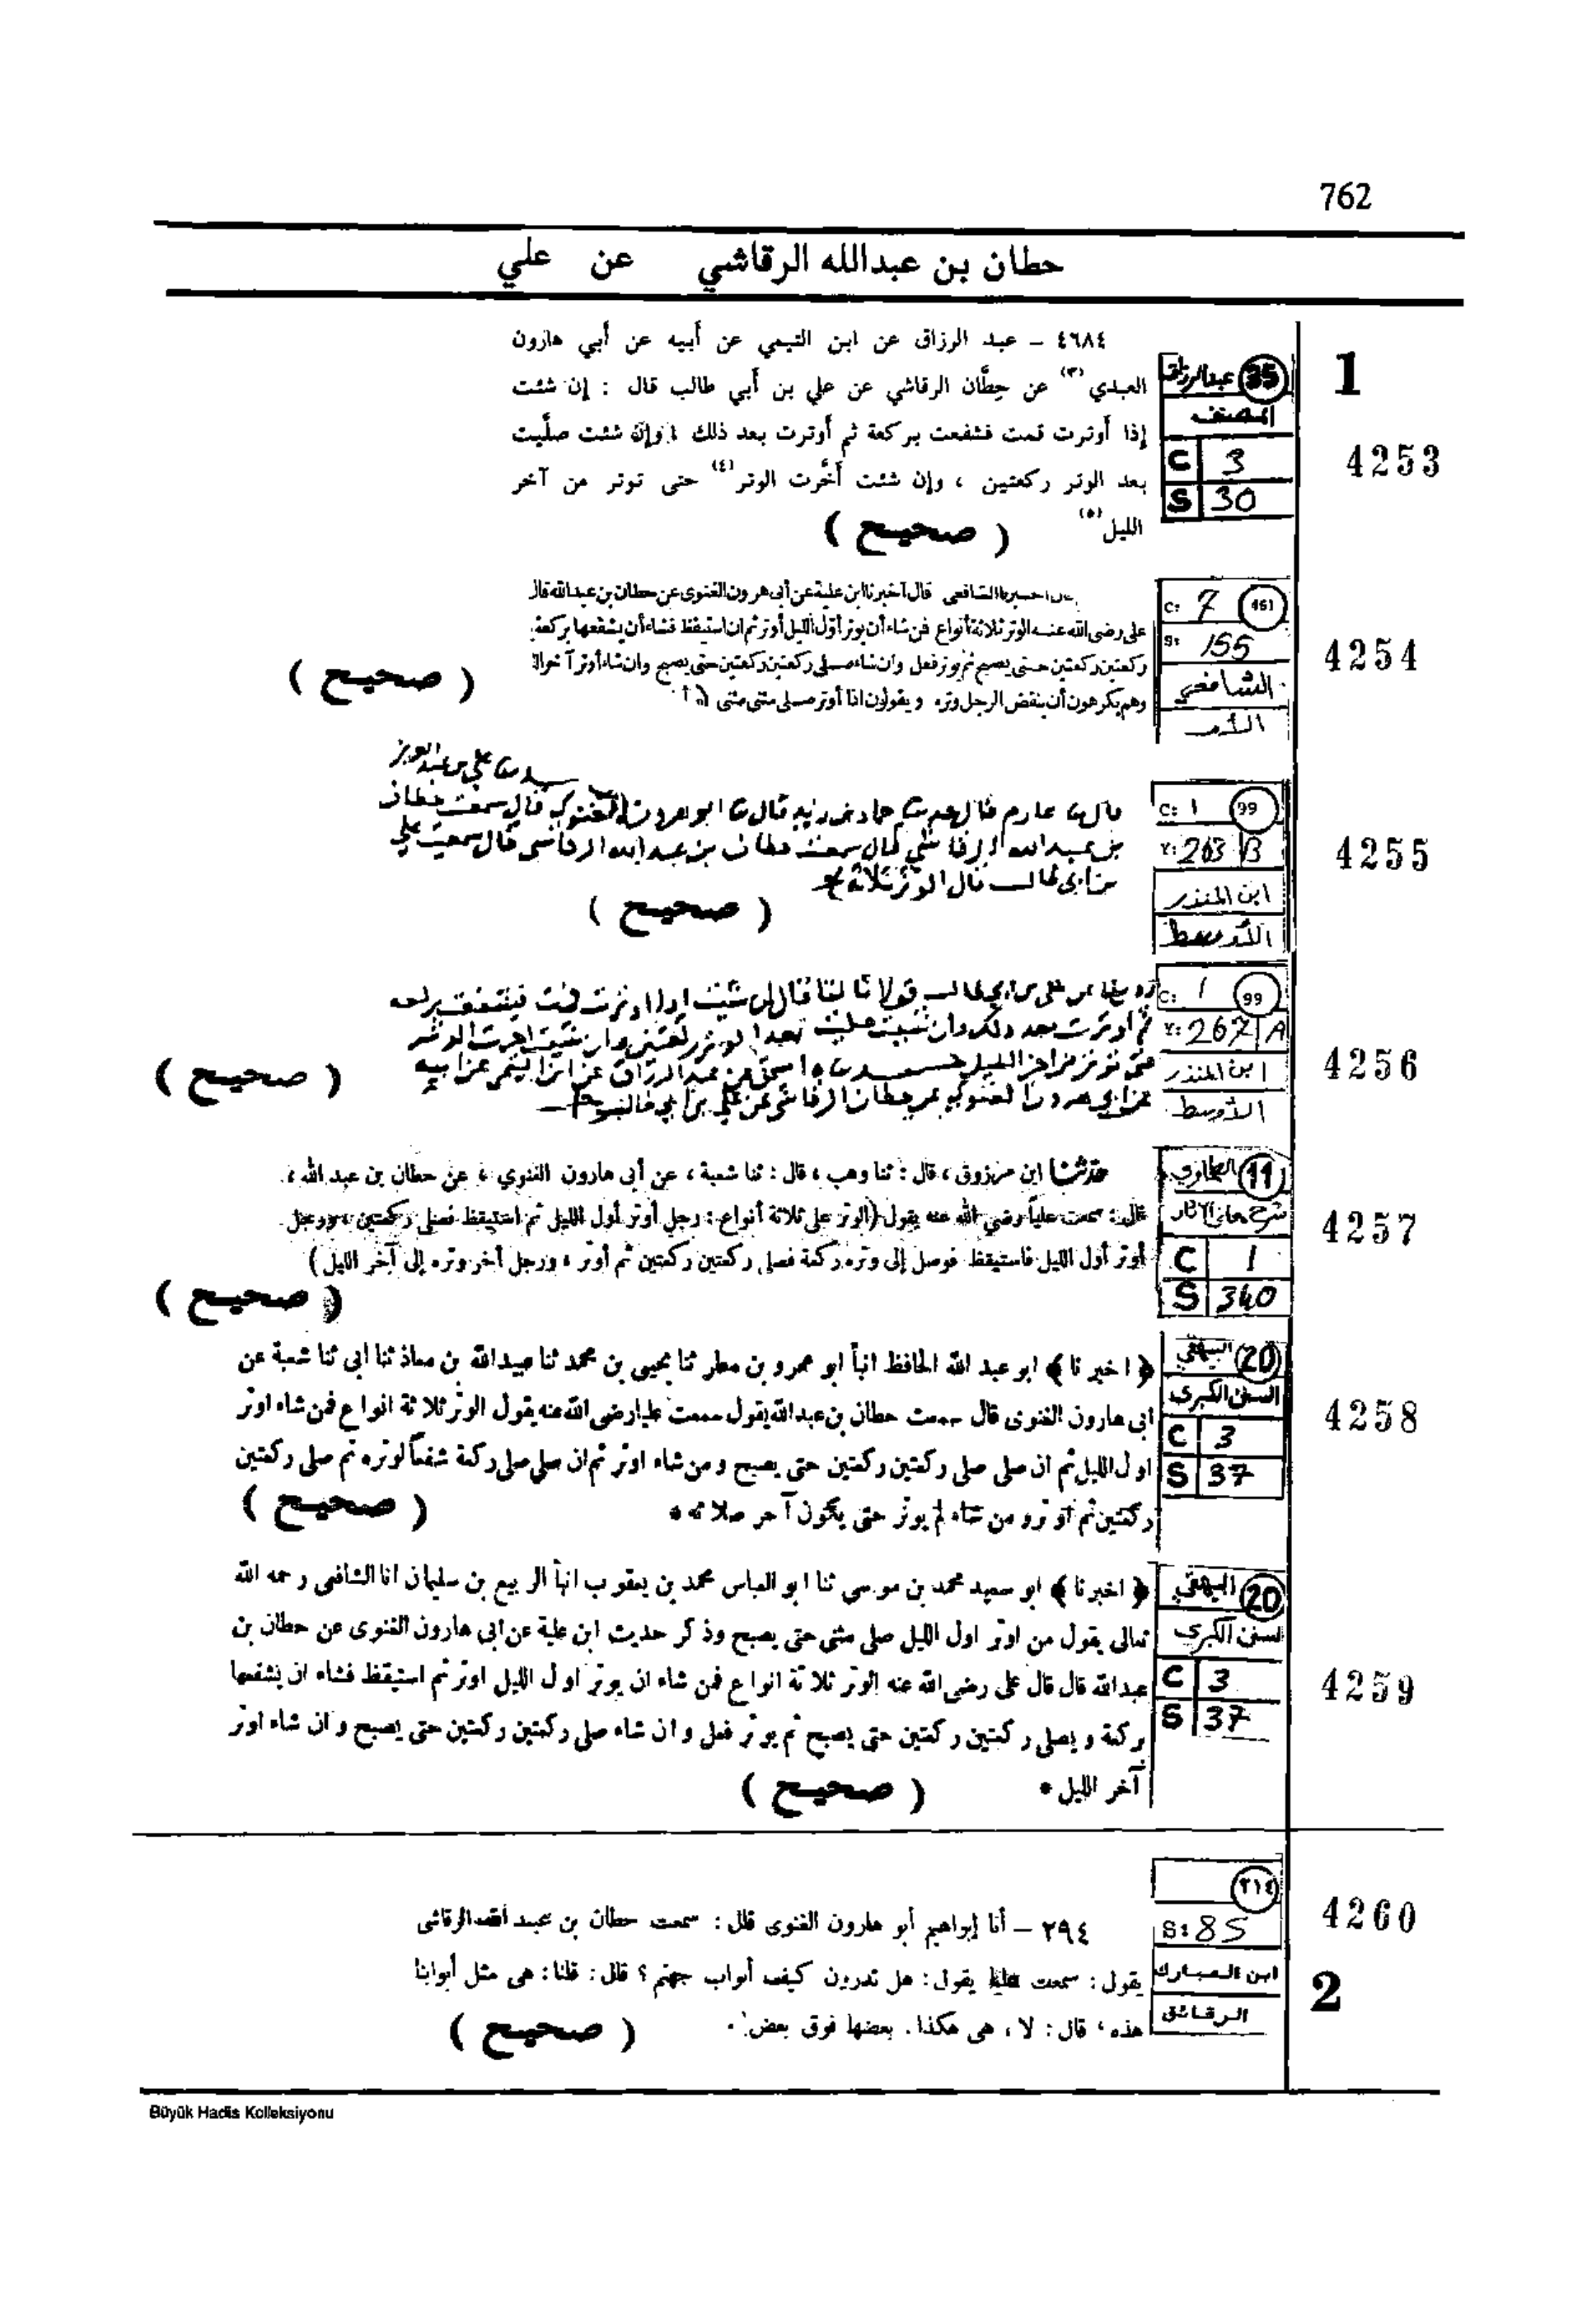 762
حطان بن عبدالله الرقاشي عن علي
1
4253
35 عبدالرزاق
المصنف
C 3
S 30
٤٦٨٤ – عبد الرزاق عن ابن التيمي عن أبيه عن أبي هارون
العبدي (٣) عن حِطَّان الرقاشي عن علي بن أبي طالب قال : إن شئت
إذا أوترت قمت فشفعت بركعة ثم أوترت بعد ذلك ، وإن شئت صلَّيت
بعد الوتر ركعتين ، وإن شئت أخَّرت الوتر (٤) حتى توتر من آخر
الليل (٥)
( صحيح )
4254
C: 7 461
S: 155
الشافعي
الأم
الشافعى قال أخبرنا ابن علية عن أبى هرون الغنوى عن حطان بن عبدالله قال
على رضى الله عنه الوتر ثلاثة أنواع فمن شاء أن يوتر أول الليل أوتر ثم ان استيقظ فشاء أن يشفعها بركعة
ركعتين ركعتين حتى يصبح ثم يوتر فعل وان شاء صلى ركعتين ركعتين حتى يصبح وان شاء أوتر آخر
وهم يكرهون أن ينقض الرجل وتره ويقولون اذا أوتر صلى مثنى مثنى
( صحيح )
4255
C: 1 99
Y: 263 B
ابن المنذر
الأوسط
علي بن عبد العزيز
قال عارم قال حماد بن زيد قال ابو هرون الغنوي قال سمعت حطان
بن عبدالله الرقاشي قال سمعت حطان بن عبدالله الرقاشي قال سمعت علي
بن ابي طالب قال الوتر ثلاثة
( صحيح )
4256
C: 1 99
Y: 267 A
ابن المنذر
الأوسط
عن علي بن ابي طالب قولا ثالثا قال ان شئت اذا اوترت قمت فشفعت بركعة
ثم اوترت بعد ذلك وان شئت صليت بعد الوتر ركعتين وان شئت اخرت الوتر
حتى توتر من اخر الليل اسحق عن عبد الرزاق عن ابن التيمي عن ابيه
عن ابي هرون الغنوي عن حطان الرقاشي عن علي بن ابي طالب
( صحيح )
4257
11 الطحاوي
شرح معاني الآثار
C 1
S 340
حدثنا ابن مرزوق ، قال : ثنا وهب ، قال : ثنا شعبة ، عن أبى هارون الغنوي ، عن حطان بن عبد الله ،
قال : سمعت علياً رضي الله عنه يقول (الوتر على ثلاثة أنواع : رجل أوتر أول الليل ثم استيقظ فصلى ركعتين ، ورجل
أوتر أول الليل فاستيقظ فوصل إلى وتره ركعة فصلى ركعتين ركعتين ثم أوتر ، ورجل أخر وتره إلى آخر الليل)
( صحيح )
4258
20 البيهقي
السنن الكبرى
C 3
S 37
﴿ اخبرنا ﴾ ابو عبد الله الحافظ انبأ ابو عمرو بن مطر ثنا يحيى بن محمد ثنا عبيدالله بن معاذ ثنا ابى ثنا شعبة عن
ابى هارون الغنوى قال سمعت حطان بن عبدالله يقول سمعت عليا رضى الله عنه يقول الوتر ثلاثة انواع فمن شاء اوتر
اول الليل ثم ان صلى صلى ركعتين ركعتين حتى يصبح ومن شاء اوتر ثم ان صلى صلى ركعة شفعا لوتره ثم صلى ركعتين
ركعتين ثم اوتر ومن شاء لم يوتر حتى يكون آخر صلاته *
( صحيح )
4259
20 البيهقي
السنن الكبرى
C 3
S 37
﴿ اخبرنا ﴾ ابو سعيد محمد بن موسى ثنا ابو العباس محمد بن يعقوب انبأ الربيع بن سليمان انا الشافعى رحمه الله
تعالى يقول من اوتر اول الليل صلى مثنى حتى يصبح وذكر حديث ابن علية عن ابى هارون الغنوى عن حطان بن
عبدالله قال قال على رضى الله عنه الوتر ثلاثة انواع فمن شاء ان يوتر اول الليل اوتر ثم استيقظ فشاء ان يشفعها
بركعة ويصلى ركعتين ركعتين حتى يصبح ثم يوتر فعل وان شاء صلى ركعتين ركعتين حتى يصبح وان شاء اوتر
آخر الليل *
( صحيح )
4260
2
٢١٤
S: 85
ابن المبارك
الرقائق
٢٩٤ – أنا إبراهيم أبو هارون الغنوى قال : سمعت حطان بن عبد الله الرقاشى
يقول : سمعت عليا يقول : هل تدرون كيف أبواب جهنم ؟ قال : قلنا : هى مثل أبوابنا
هذه ، قال : لا ، هى هكذا . بعضها فوق بعض .
( صحيح )
Büyük Hadis Kolleksiyonu